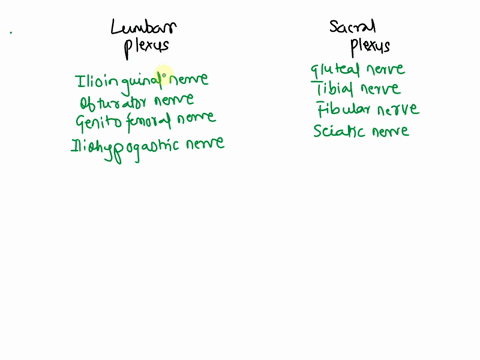 Lumbar
plexus
Ilioinguinal nerve
Obturator nerve
Genitofemoral nerve
Iliohypogastric nerve
Sacral
plexus
gluteal nerve
Tibial nerve
Fibular nerve
Sciatic nerve